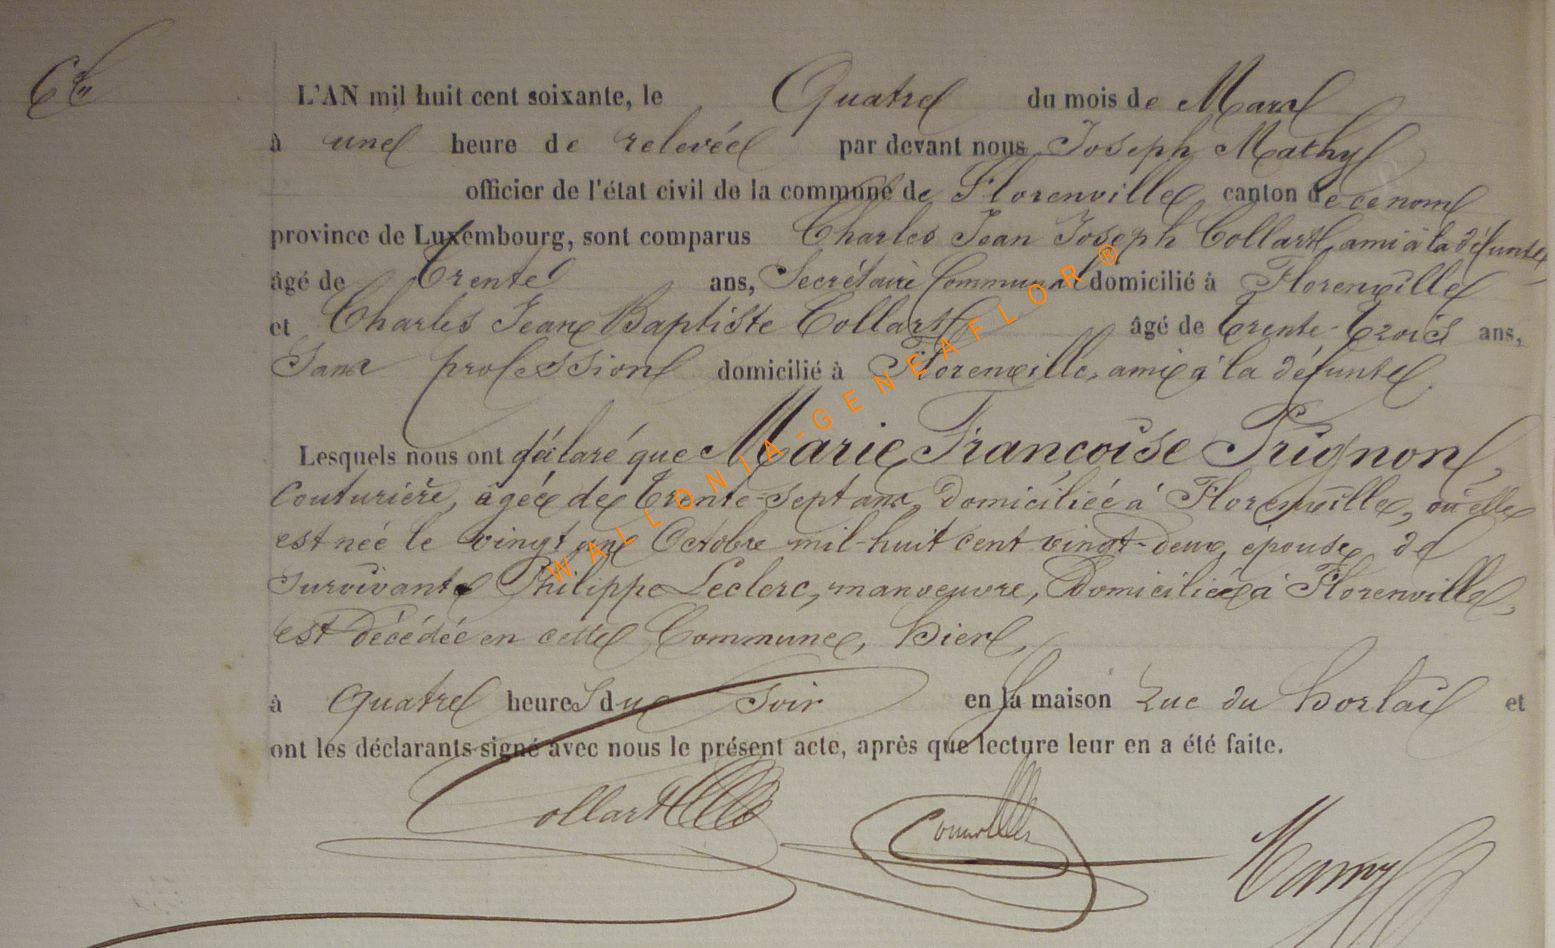 L'AN mil huit cent soixante, le Quatre du mois de Mars
à une heure de relevée par devant nous Joseph Mathy
officier de l'état civil de la commune de Florenville canton de ce nom
province de Luxembourg, sont comparus Charles Jean Joseph Collart, ami à la défunte,
âgé de Trente ans, Secrétaire Communal domicilié à Florenville
et Charles Jean Baptiste Collart âgé de Trente-Trois ans,
Sans profession domicilié à Florenville, ami à la défunte
Lesquels nous ont déclaré que Marie Françoise Prignon,
Couturière, âgée de Trente-Sept ans, Domiciliée à Florenville, où elle
est née le vingt un Octobre mil-huit cent vingt-deux, epouse de
Survivante Philippe Leclerc, manoeuvre, Domiciliée à Florenville,
est Décédée en cette Commune, hier,
à Quatre heures du Soir en la maison Rue du et
ont les déclarants signé avec nous le présent acte, après que lecture leur en a été faite.
Collart
WALLONIA-GENEAFLOR ®